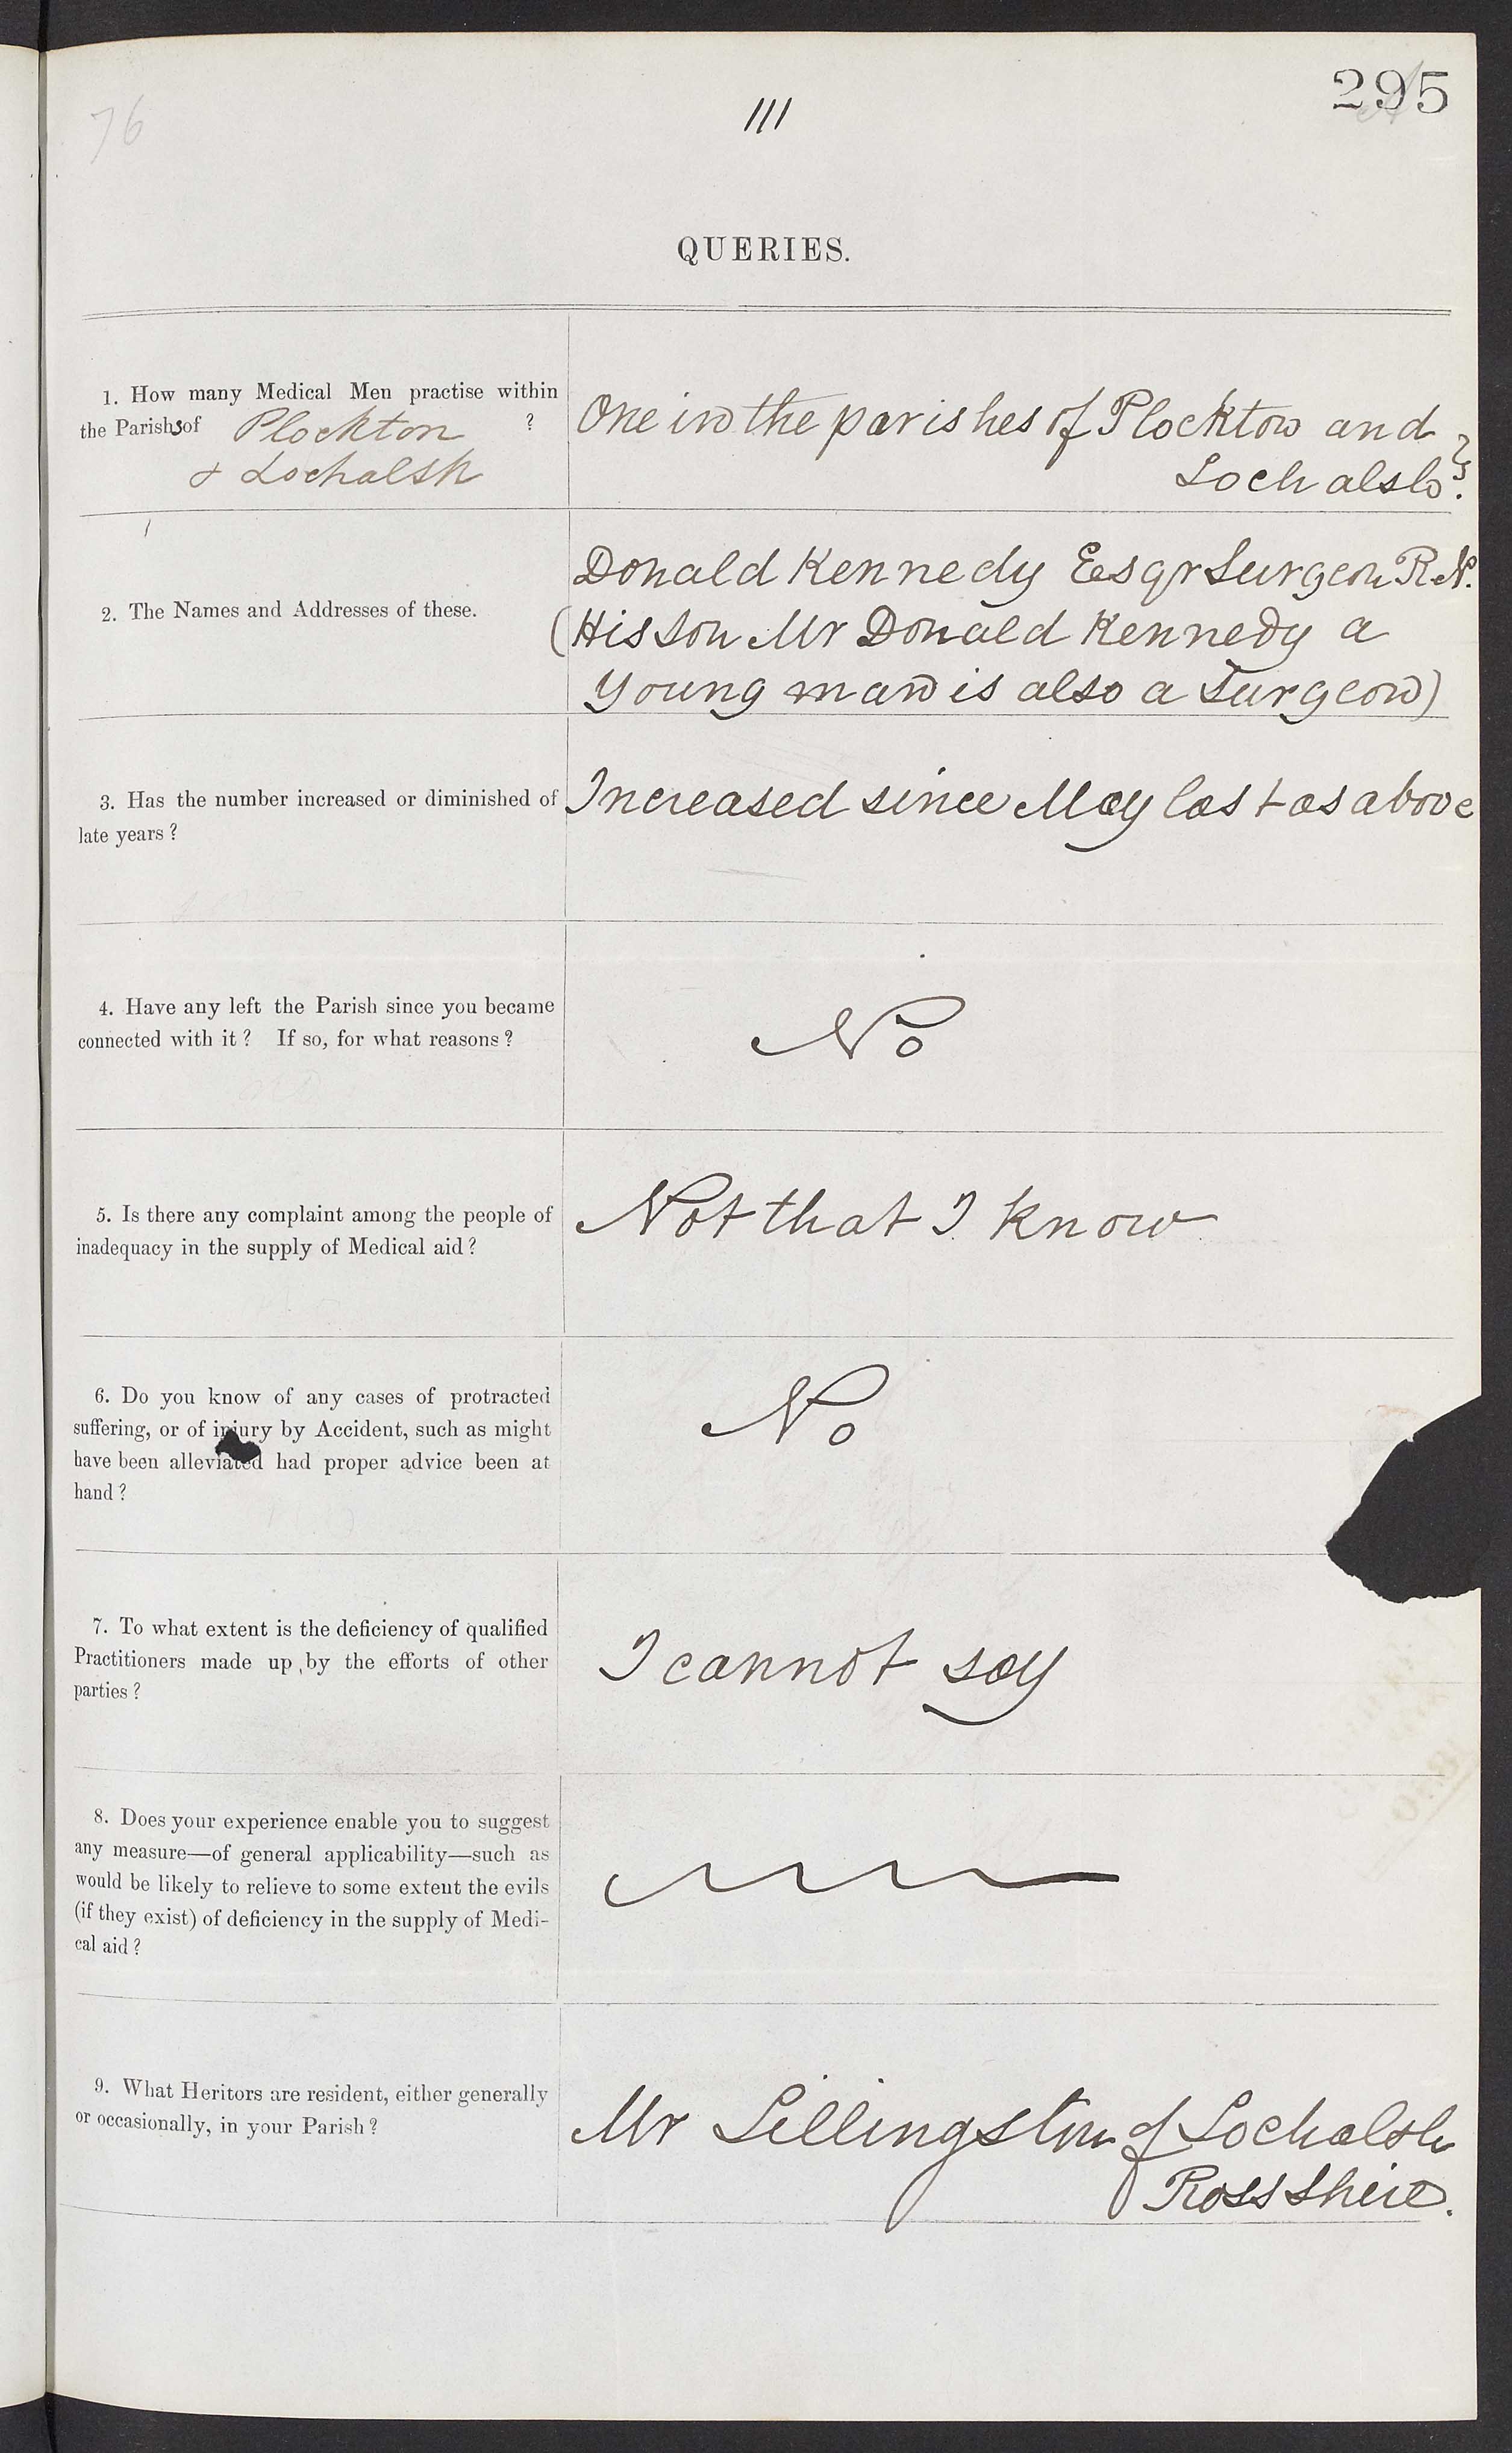 76
111
295
QUERIES.
1. How many Medical Men practise within
the Parishs of Plockton ?
& Lochalsh
One in the parishes of Plockton and
Lochalsh.
2. The Names and Addresses of these.
Donald Kennedy Esqr Surgeon R.N.
(His Son Mr Donald Kennedy a
Young man is also a Surgeon)
3. Has the number increased or diminished of
late years?
Increased since May last as above
4. Have any left the Parish since you became
connected with it? If so, for what reasons?
No
5. Is there any complaint among the people of
inadequacy in the supply of Medical aid?
Not that I know
6. Do you know of any cases of protracted
suffering, or of injury by Accident, such as might
have been alleviated had proper advice been at
hand?
No
7. To what extent is the deficiency of qualified
Practitioners made up by the efforts of other
parties?
I cannot say
8. Does your experience enable you to suggest
any measure—of general applicability—such as
would be likely to relieve to some extent the evils
(if they exist) of deficiency in the supply of Medi-
cal aid?
9. What Heritors are resident, either generally
or occasionally, in your Parish?
Mr Lillingston of Lochalsh
Ross Shire.